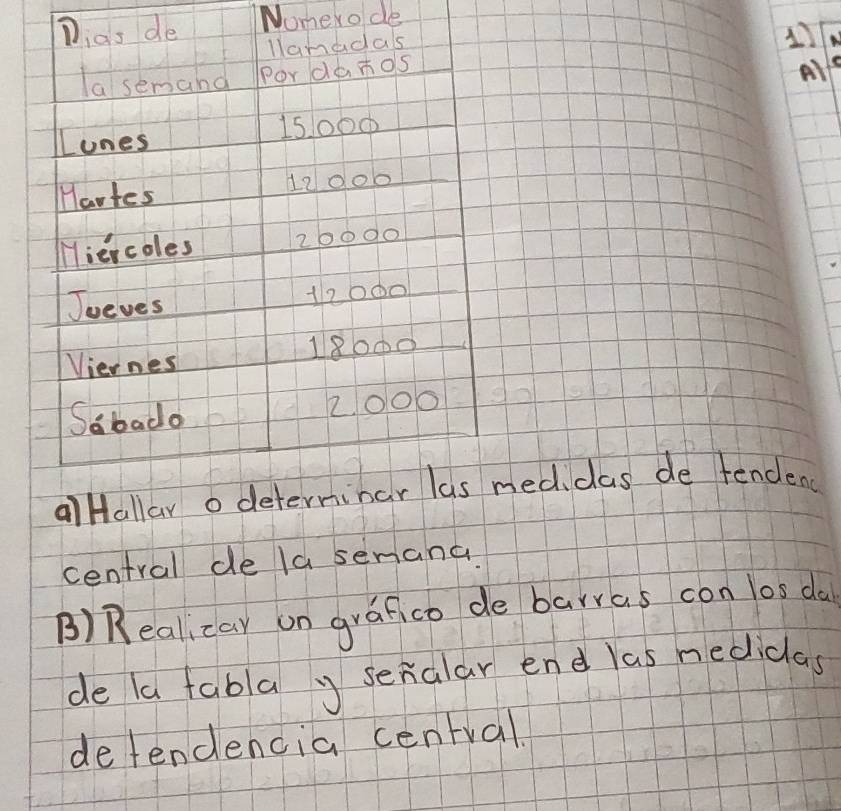 Dias de Numero de
llamadas
la semana por daños
Lunes 15.000
Martes 12000
Miércoles 20000
Jueves 12000
Viernes 18000
Sábado 2.000
a) Hallar o determinar las medidas de tendenc
central de la semana.
B) Realizar un gráfico de barras con los da
de la tabla y señalar end las medidas
de tendencia central.
1)
A)